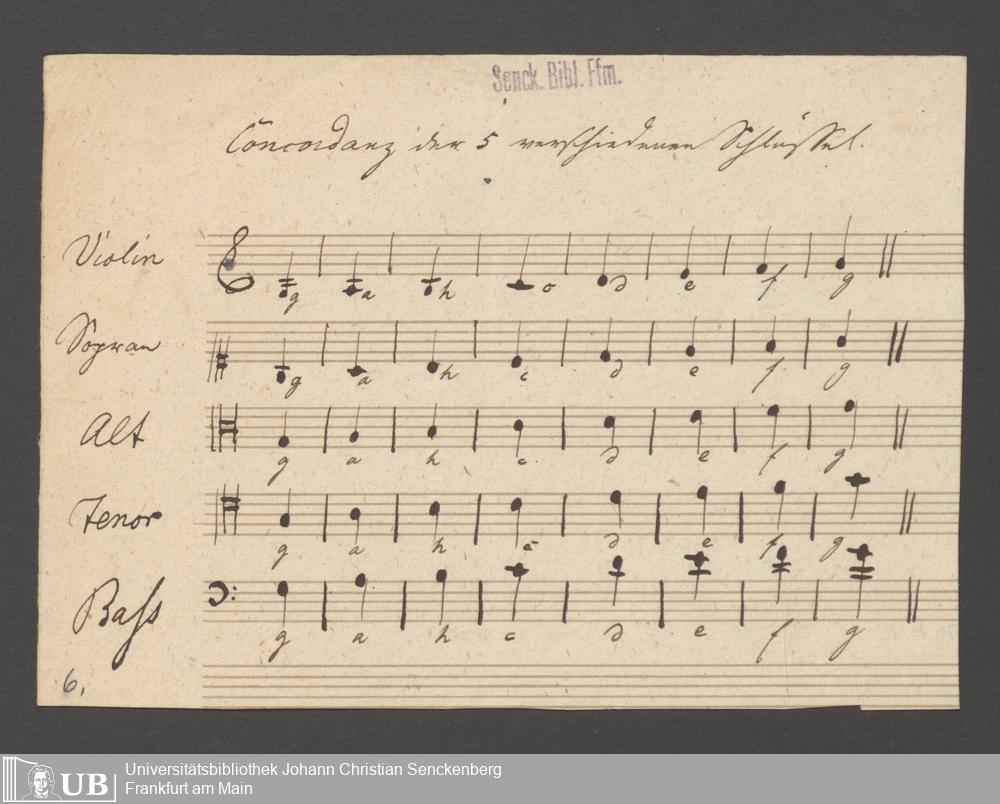 Senck. Bibl. Ffm.
Concordanz der 5 verschiedenen Schlüssel.
Violin
g a h c d e f g
Sopran
g a h c d e f g
Alt
g a h c d e f g
Tenor
g a h c d e f g
Baſs
g a h c d e f g
6.
UB
Universitätsbibliothek Johann Christian Senckenberg
Frankfurt am Main